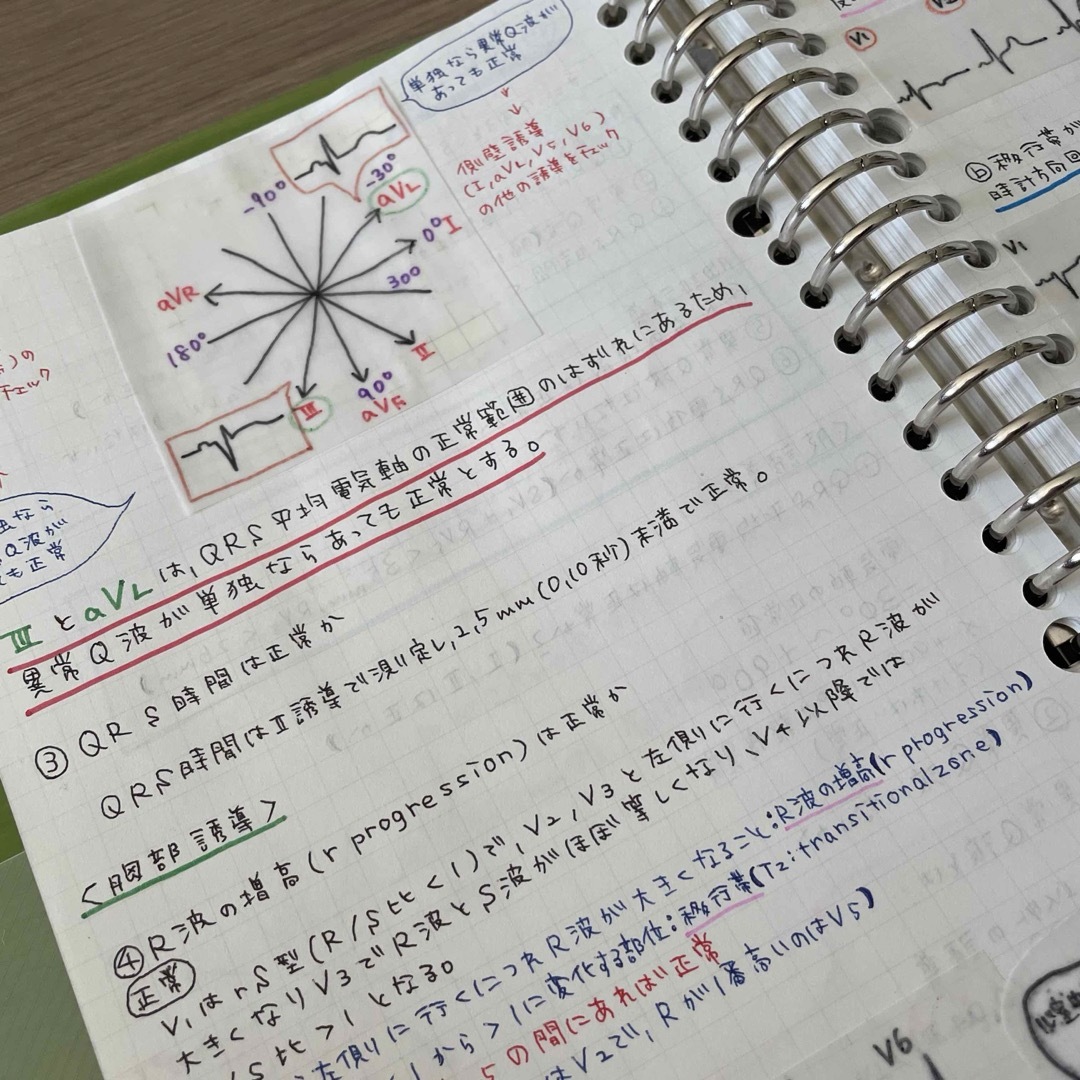 単独なら異常Q波が
あっても正常
側壁誘導
(I, aVL, V5, V6)
の他の誘導をチェック
-90°
-30°
aVL
0° I
300
aVR
180°
II
90°
III
の
チェック
独なら
Q波が
ても正常
III と aVL は、QRS平均電気軸の正常範囲のはずれにあるため、
異常Q波が単独ならあっても正常とする。
③ QRS時間は正常か
QRS時間はII誘導で測定し、2,5mm(0,10秒)未満で正常。
<胸部誘導>
④ R波の増高(r progression)は正常か
正常
V1はrS型(R/S比<1)で、V2, V3と左側に行くにつれR波が
大きくなりV3でR波とS波がほぼ等しくなり、V4以降では
S比>1となる。
左側に行くにつれR波が大きくなること:R波の増高(r progression)
1から>1に変化する部位:移行帯(Tz:transitional zone)
5の間にあれば正常
はV2で、Rが1番高いのはV5)
V1
ⓑ移行帯が
時計方向回
V1
V6